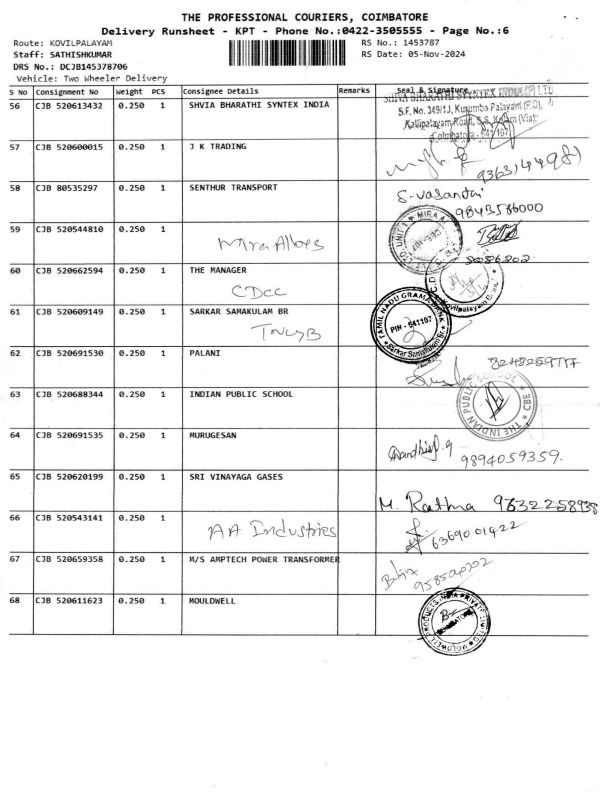 THE PROFESSIONAL COURIERS, COIMBATORE
Delivery Runsheet - KPT - Phone No.:0422-3505555 - Page No.:6
Route: KOVILPALAYAM RS No.: 1453787
Staff: SATHISHKUMAR RS Date: 05-Nov-2024
DRS No.: DCJB145378706
Vehicle: Two Wheeler Delivery
S No Consignment No Weight PCS Consignee Details Remarks Seal & Signature
56 CJB 520613432 0.250 1 SHVIA BHARATHI SYNTEX INDIA
S.F. No. 349/1J, Kurumba Palayam (P.O),
Kallipalayam Road, S.S. Kulam (Via)
Coimbatore - 641107
57 CJB 520600015 0.250 1 J K TRADING
58 CJB 80535297 0.250 1 SENTHUR TRANSPORT S-vasanthi
9843586000
59 CJB 520544810 0.250 1 Mira Alloys
60 CJB 520662594 0.250 1 THE MANAGER
CDCC
Kovilpalayam
61 CJB 520609149 0.250 1 SARKAR SAMAKULAM BR
TNGB
TAMIL NADU GRAMA BANK
PIN - 641107
Sarkar Samakulam Br.
62 CJB 520691530 0.250 1 PALANI
63 CJB 520688344 0.250 1 INDIAN PUBLIC SCHOOL
THE INDIAN PUBLIC SCHOOL CBE
64 CJB 520691535 0.250 1 MURUGESAN
9894059359.
65 CJB 520620199 0.250 1 SRI VINAYAGA GASES
M. Rathna
66 CJB 520543141 0.250 1 AA Industries
6369001422
67 CJB 520659358 0.250 1 M/S AMPTECH POWER TRANSFORMER
68 CJB 520611623 0.250 1 MOULDWELL
MOLDWELL PRODUCTS INDIA PRIVATE LIMITED
COIMBATORE